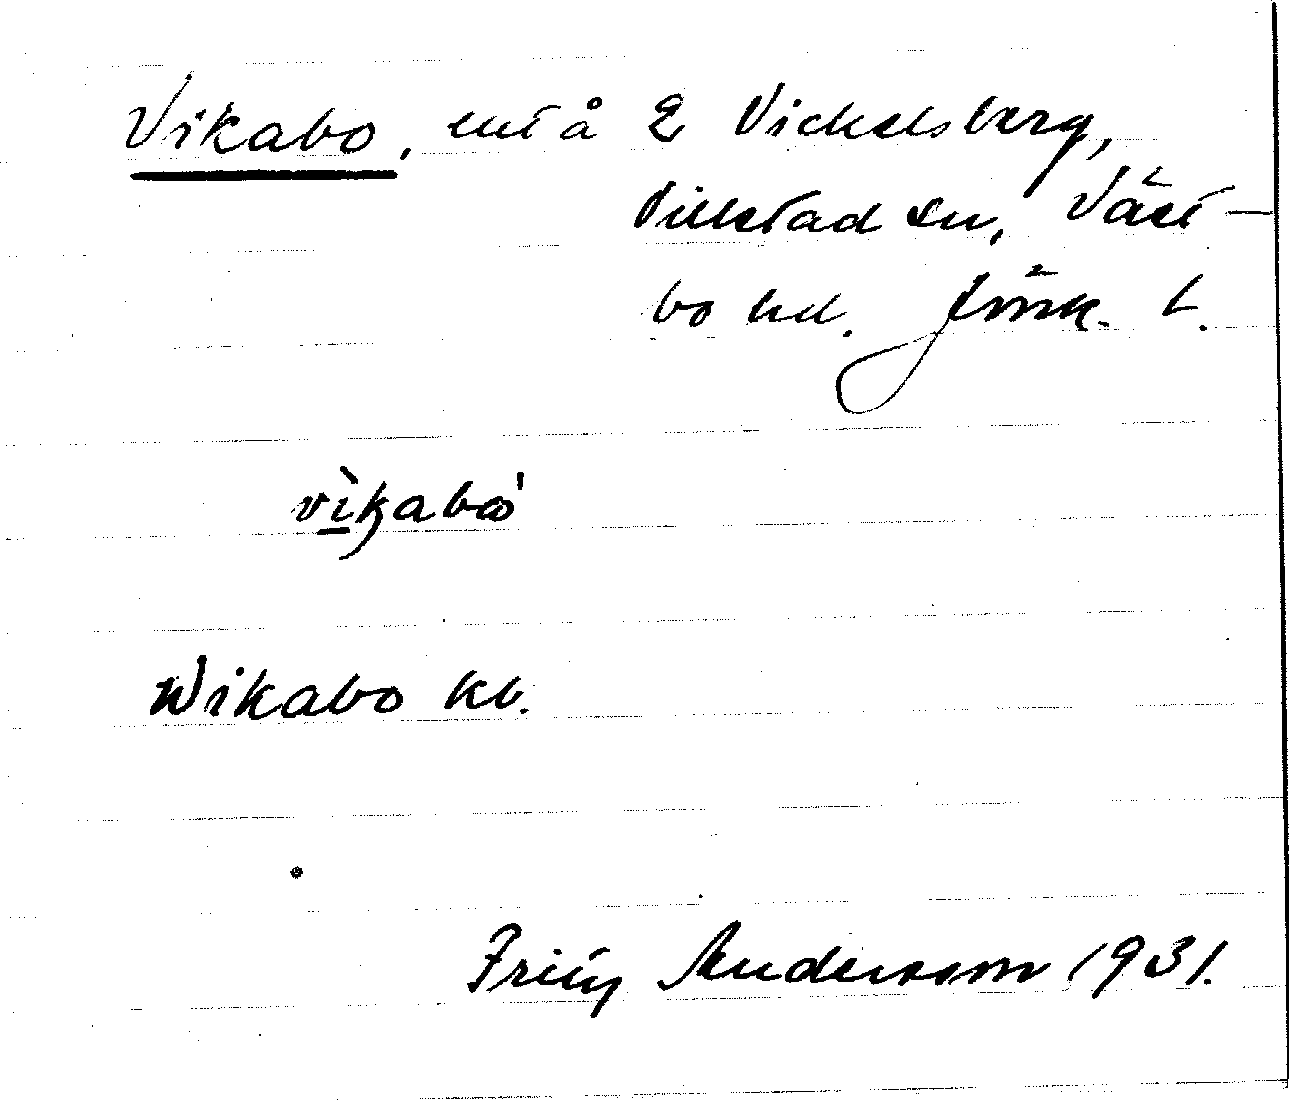 Vikabo, utä å 2 Vickelsberg,
Villstad sn, Väst-
bo hd. Jönk. l.
vìkabo
Wikabo kb.
Frity Andersson 1931.